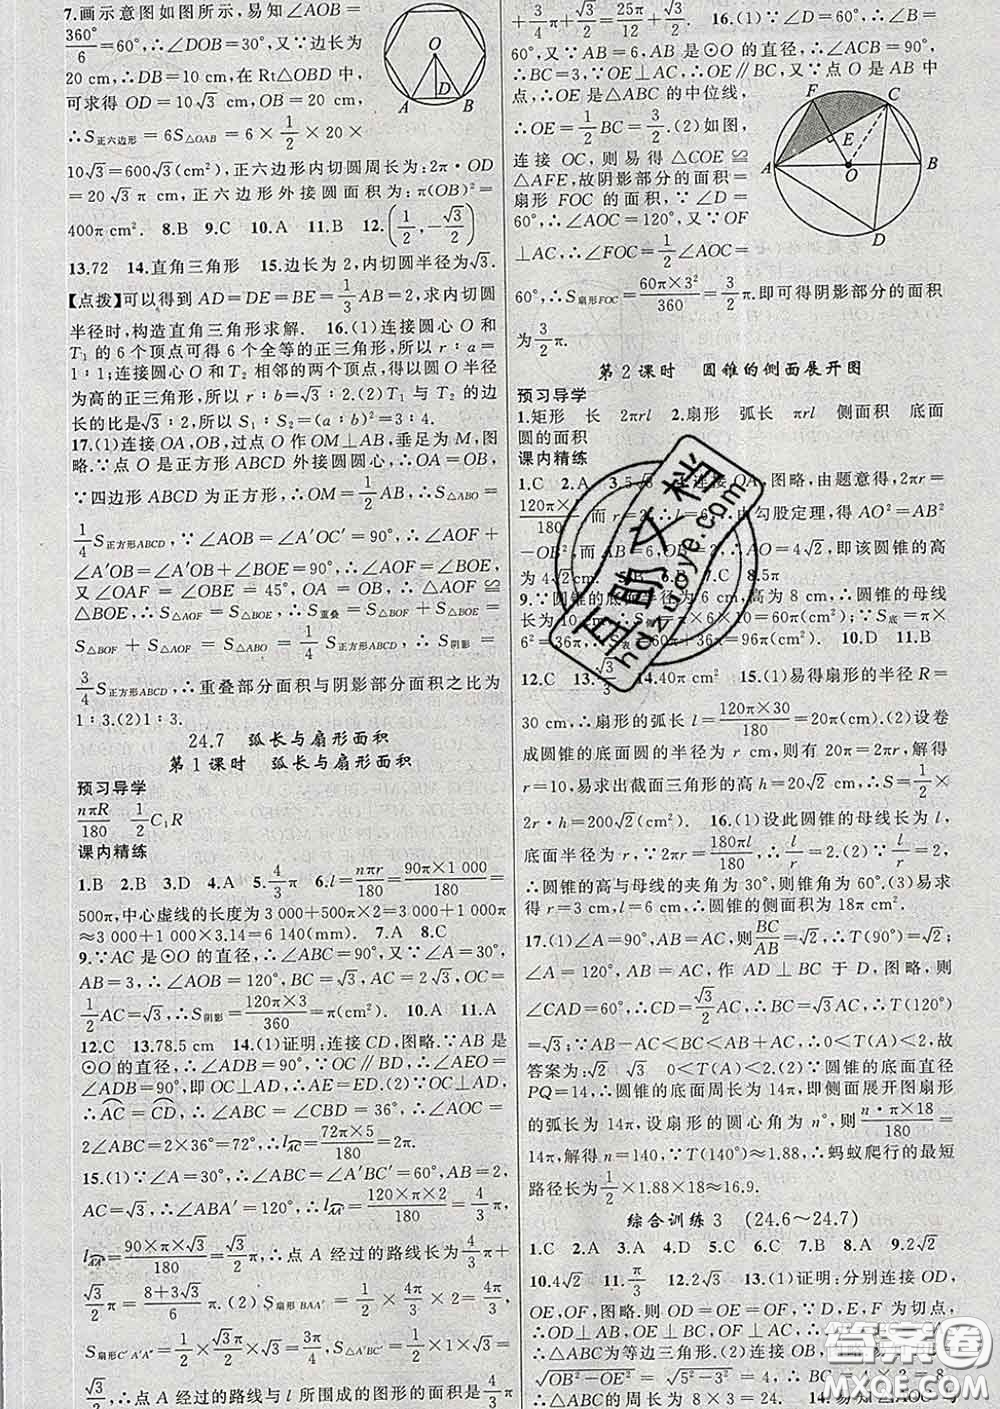 7.画示意图如图所示,易知∠AOB=
360°/6=60°,∴∠DOB=30°,又∵边长为
20 cm,∴DB=10 cm,在Rt△OBD中,
可求得 OD=10√3 cm,OB=20 cm,
∴S正六边形=6S△OAB=6×1/2×20×
10√3=600√3(cm²),正六边形内切圆周长为:2π·OD
=20√3π cm,正六边形外接圆面积为:π(OB)²=
400π cm². 8.B 9.C 10.A 11.B 12.(1/2,-√3/2)
13.72 14.直角三角形 15.边长为2,内切圆半径为√3.
【点拨】可以得到AD=DE=BE=1/3AB=2,求内切圆
半径时,构造直角三角形求解. 16.(1)连接圆心O和
T₁的6个顶点可得6个全等的正三角形,所以r∶a=
1∶1;连接圆心O和T₂相邻的两个顶点,得以圆O半径
为高的正三角形,所以r∶b=√3∶2.(2)T₁与T₂的边
长的比是√3∶2,所以S₁∶S₂=(a∶b)²=3∶4.
17.(1)连接OA,OB,过点O作OM⊥AB,垂足为M,图
略.∵点O是正方形ABCD外接圆圆心,∴OA=OB,
∵四边形ABCD为正方形,∴OM=1/2AB,∴S△ABO=
1/4S正方形ABCD,∵∠AOB=∠A′OC′=90°,∴∠AOF+
∠A′OB=∠A′OB+∠BOE=90°,∴∠AOF=∠BOE,
又∠OAF=∠OBE=45°,OA=OB,∴△AOF≌
△BOE,∴S△AOF=S△BOE,∴S重叠=S△BOF+S△BOE=
S△BOF+S△AOF=S△ABO=1/4S正方形ABCD,∴S阴影=
3/4S正方形ABCD,∴重叠部分面积与阴影部分面积之比为
1∶3.(2)1∶3.
24.7 弧长与扇形面积
第1课时 弧长与扇形面积
预习导学
nπR/180 1/2C₁R
课内精练
1.B 2.B 3.D 4.A 5.4/3π 6.l=nπr/180=90π×1 000/180=
500π,中心虚线的长度为3 000+500π×2=3 000+1 000π
≈3 000+1 000×3.14=6 140(mm). 7.A 8.C
9.∵AC是⊙O的直径,∴∠ABC=90°,又∵∠A=30°,
AB=3,∴∠AOB=120°,BC=√3,AC=2√3,OC=
1/2AC=√3,∴S阴影=120π×3/360=π(cm²). 10.A 11.A
12.C 13.78.5 cm 14.(1)证明:连接CD,图略.∵AB是
⊙O的直径,∴∠ADB=90°,∵OC∥BD,∴∠AEO=
∠ADB=90°,即OC⊥AD,∴AE=ED.(2)∵OC⊥AD,
∴AC=CD,∴∠ABC=∠CBD=36°,∴∠AOC=
2∠ABC=2×36°=72°,∴lAC=72π×5/180=2π.
15.(1)∵∠A=30°,∴∠ABC=∠A′BC′=60°,AB=2,
AC=√3,∴∠ABA′=120°.∴lAA′=120×π×2/180=4/3π,
lA′A″=90×π×√3/180=√3/2π,∴点A经过的路线长为4/3π+
√3/2π=8+3√3/6π.(2)S扇形BAA′=1/2×4π/3×2=4π/3,
S扇形C′A′A″=1/2×√3/2π×√3=3π/4,S△A′BC′=1/2×1×√3=
√3/2,∴点A经过的路线与l所围成的图形的面积是4/3π
+3/4π+√3/2=25π/12+√3/2. 16.(1)∵∠D=60°,∴∠B=
60°,又∵AB=6,AB是⊙O的直径,∴∠ACB=90°,
∴BC=3,∵OE⊥AC,∴OE∥BC,又∵点O是AB中
点,∴OE是△ABC的中位线,
∴OE=1/2BC=3/2.(2)如图,
连接OC,则易得△COE≌
△AFE,故阴影部分的面积=
扇形FOC的面积,∵∠D=
60°,∴∠AOC=120°,又∵OF
⊥AC,∴∠FOC=1/2∠AOC=
60°,∴S扇形FOC=60π×3²/360=3/2π.即可得阴影部分的面积
为3/2π.
第2课时 圆锥的侧面展开图
预习导学
1.矩形 长 2πrl 2.扇形 弧长 πrl 侧面积 底面
圆的面积
课内精练
1.C 2.A 3.5√3 连接OA,图略,由题意得,2πr=
120π×/180,而r=2,∴勾股定理,得AO²=AB²
-OB²,而AB=6,OB=2,∴AO=4√2,即该圆锥的高
为4√2 cm. B 6. 7.C 8.5π
9.∵圆锥的底面半径为6 cm,高为8 cm,∴圆锥的母线
长为10 cm,∴S=π×6×10=60π(cm²);∵S底=π×
6²=36π,∴S表=60π+36π=96π(cm²). 10.D 11.B
12.C 13.√3/3 14.40π cm² 15.(1)易得扇形的半径R=
30 cm,∴扇形的弧长l=120π×30/180=20π(cm).(2)设卷
成圆锥的底面圆的半径为r cm,则有20π=2πr,解得
r=10,易求出截面三角形的高h=20√2 cm,∴S=1/2×
2r·h=200√2(cm²). 16.(1)设此圆锥的母线长为l,
底面半径为r,∵2πr=180πl/180,∴l/r=2.(2)∵l/r=2,
∴圆锥的高与母线的夹角为30°,则锥角为60°.(3)易求
得r=3 cm,l=6 cm,∴圆锥的侧面积为18π cm².
17.(1)∠A=90°,AB=AC,则BC/AB=√2,∴T(90°)=√2;
∠A=120°,AB=AC,作AD⊥BC于D,图略,则
∠CAD=60°,∴CD=√3/2AC,∴BC=√3AC,∴T(120°)
=√3;∵AB-AC<BC<AB+AC,∴0<T(A)<2,故
答案为:√2 √3 0<T(A)<2.(2)∵圆锥的底面直径
PQ=14,∴圆锥的底面周长为14π,即侧面展开图扇形
的弧长为14π,设扇形的圆心角为n°,则n·π×18/180=
14π,解得n=140,∵T(140°)≈1.88,∴蚂蚁爬行的最短
路径长为1/2×1.88×18≈16.9.
综合训练3 (24.6~24.7)
1.C 2.A 3.A 4.D 5.C 6.D 7.B 8.A 9.2√2
10.4√2 11.π/3 12.2√3 13.(1)证明:分别连接OD,
OE,OF,图略.则OD=OE=OF,∵D,E,F为切点,
∴OD⊥AB,OE⊥BC,OF
∴△ABC为等边三角形.
√OB²-OE²=
∴△ABC的周长为8×3=24. 14.易知△AOC与
百助文档
hdzuoye.com
答案圈
MXQE.COM
O
A D B
F C E A O B D